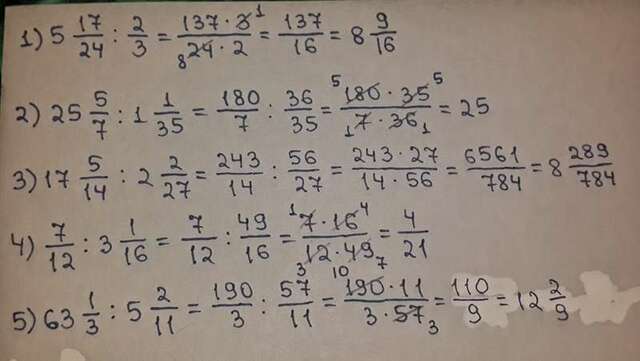 1) 5 17/24 : 2/3 = 137 · 3 1/8 24 · 2 = 137/16 = 8 9/16
2) 25 5/7 : 1 1/35 = 180/7 : 36/35 = 5 180 · 35 5/1 7 · 36 1 = 25
3) 17 5/14 : 2 2/27 = 243/14 : 56/27 = 243 · 27/14 · 56 = 6561/784 = 8 289/784
4) 7/12 : 3 1/16 = 7/12 : 49/16 = 1 7 · 16 4/3 12 · 49 7 = 4/21
5) 63 1/3 : 5 2/11 = 190/3 : 57/11 = 10 190 · 11/3 · 57 3 = 110/9 = 12 2/9